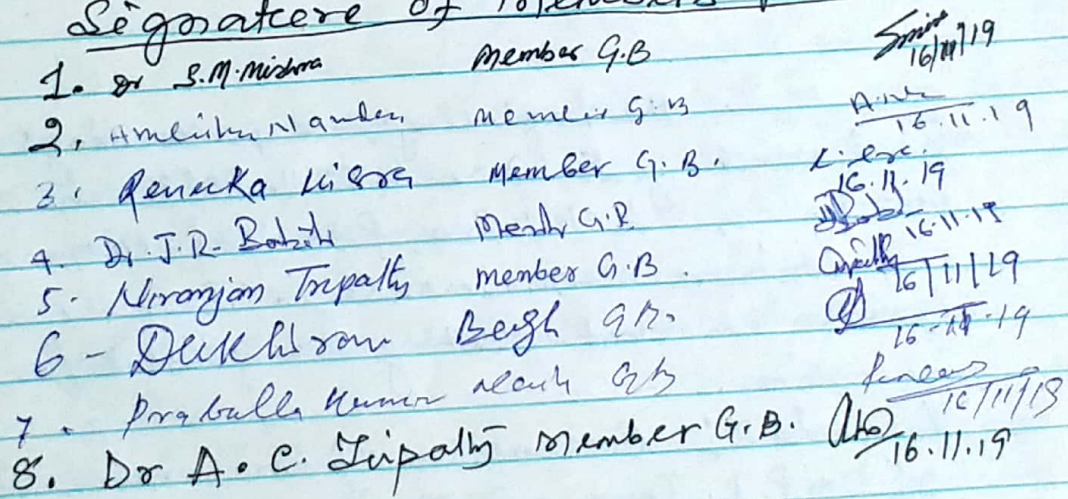 Signature of Members
1. Dr S.M. Mishra Member G.B 16/11/19
2. Nanda Member G.B 16.11.19
3. Renuka Misra Member G.B. 16.11.19
4. Dr. J.R. Member G.B 16.11.19
5. Niranjan Tripathy member G.B. 16/11/19
6 - Dukhiram Bagh G.B. 16-11-19
7. Prabulla Kumar G.B 16/11/19
8. Dr A. C. Tripathy Member G.B. 16.11.19